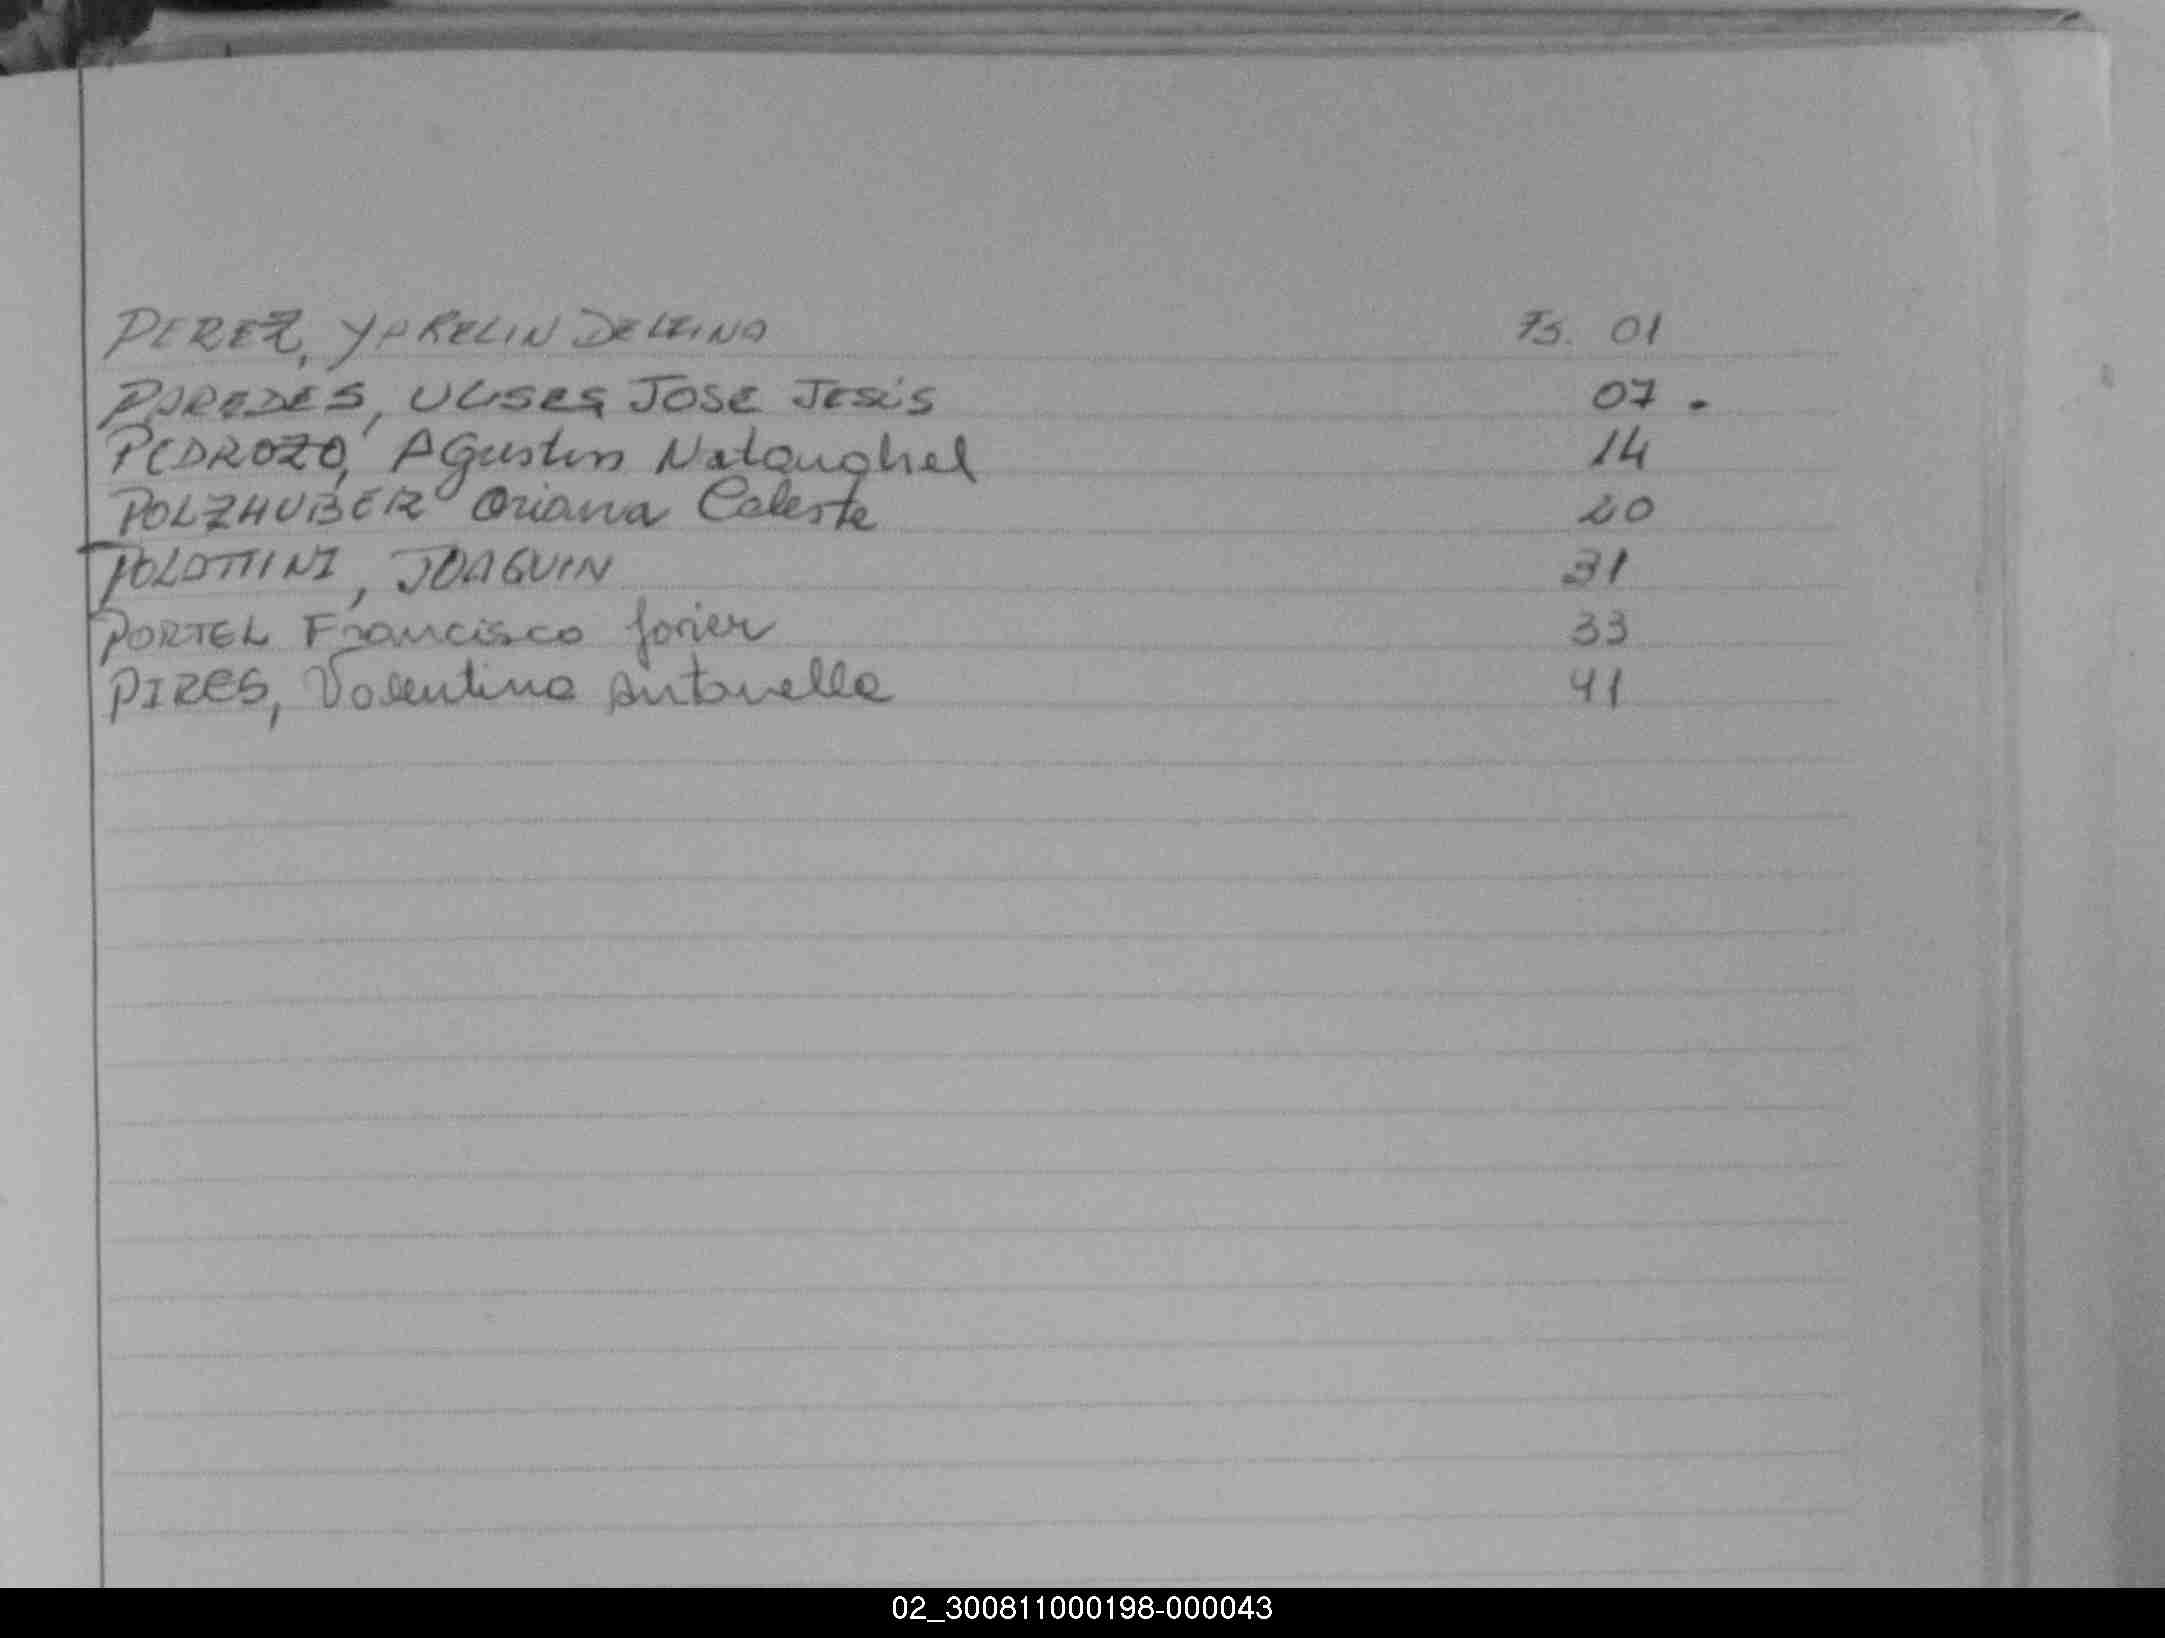 PEREZ, YARELIN DELFINA Fs. 01
PAREDES, ULISES JOSE JESÚS 07.
PEDROZO, Agustin Natanahel 14
POLZHUBER Oriana Celeste 20
POLOTTINI, JOAQUIN 31
PORTEL Francisco Javier 33
PIRES, Valentina Antonella 41
02_300811000198-000043